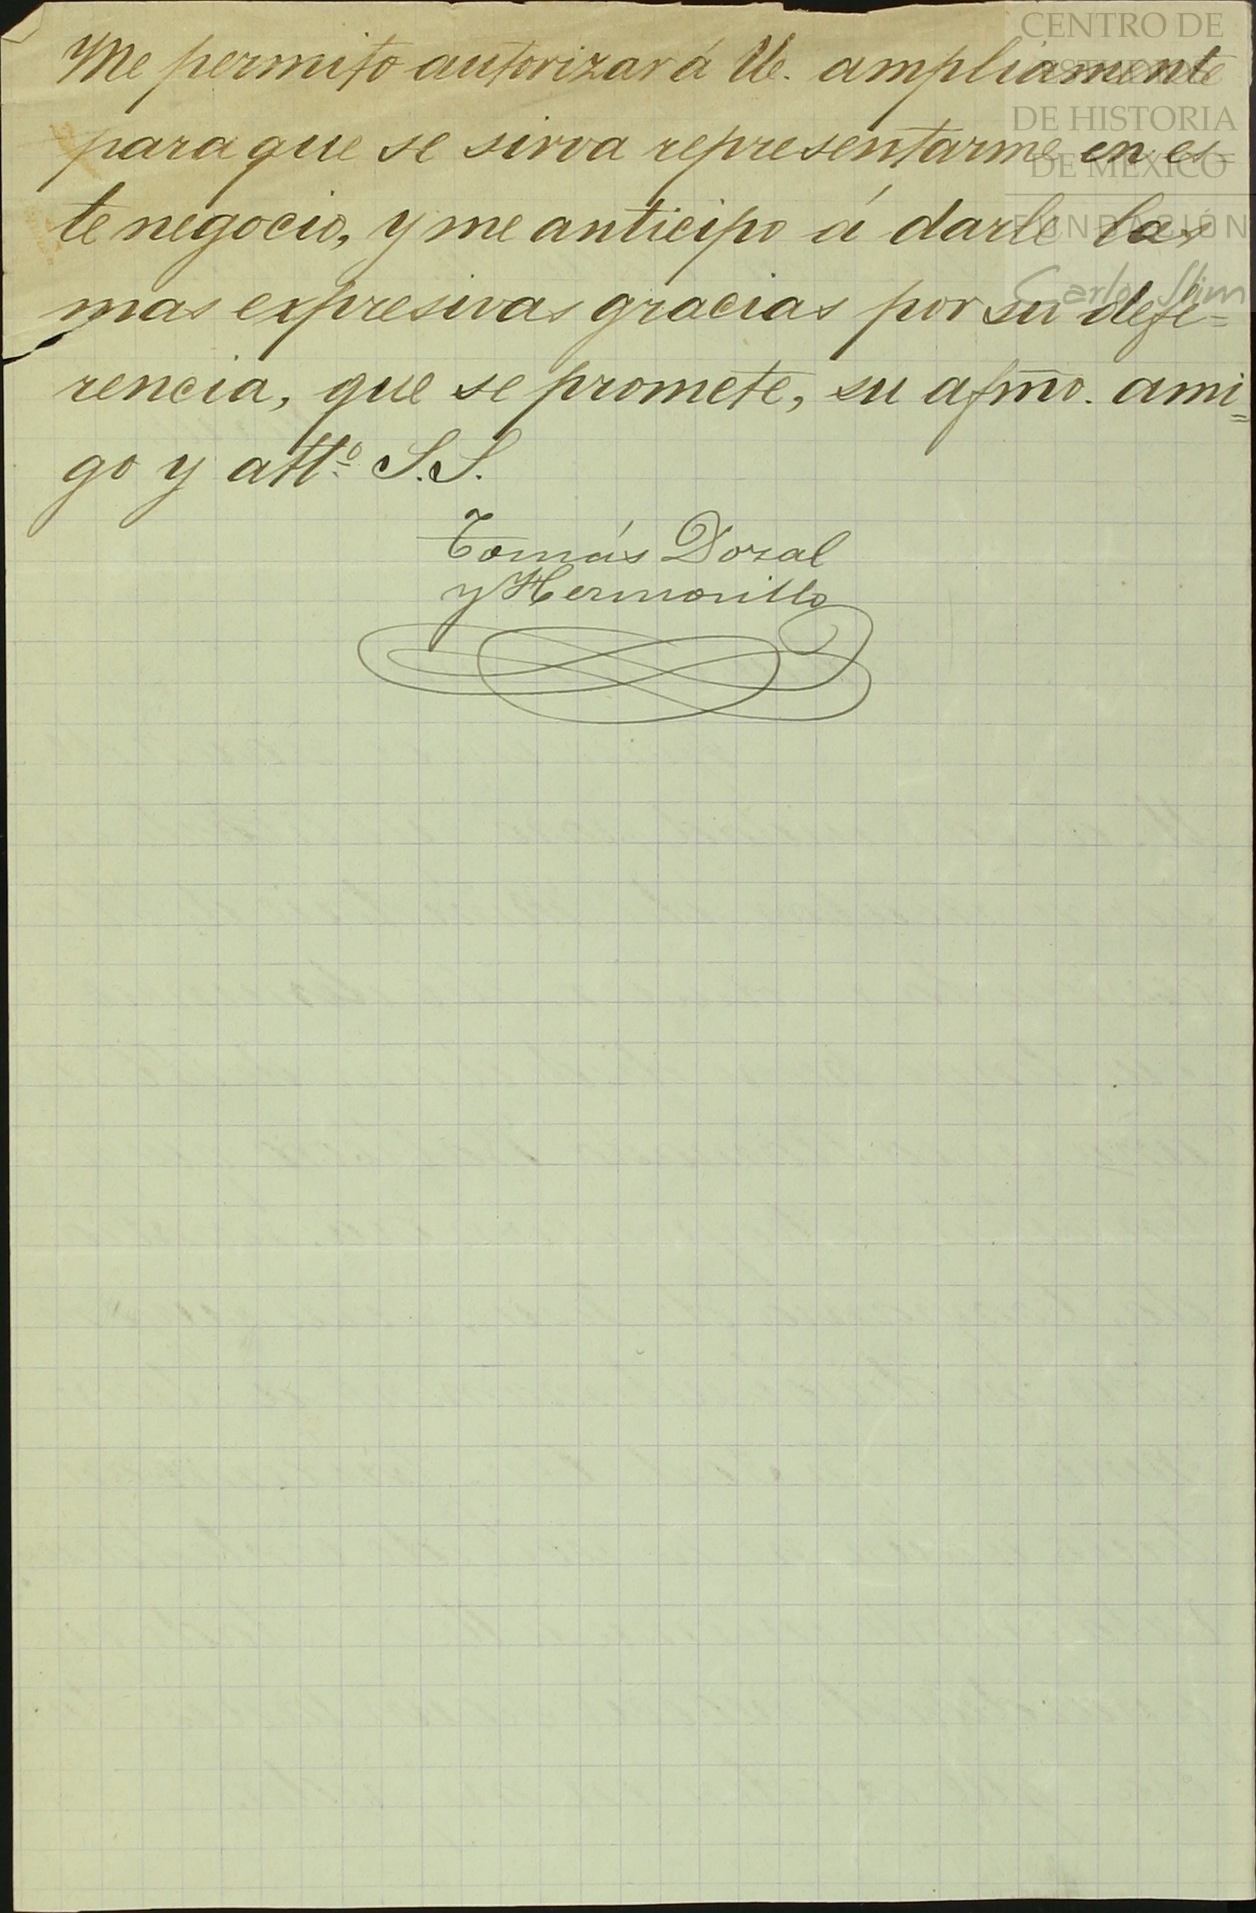 Me permito autorizar á Ud. ampliamente
para que se sirva representarme en es=
te negocio, y me anticipo á darle las
mas expresivas gracias por su defe=
rencia, que se promete, su afmo. ami=
go y atto. S.S.
Tomás Dozal
y Hermosillo
CENTRO DE
ESTUDIOS
DE HISTORIA
DE MÉXICO
FUNDACIÓN
Carlos Slim